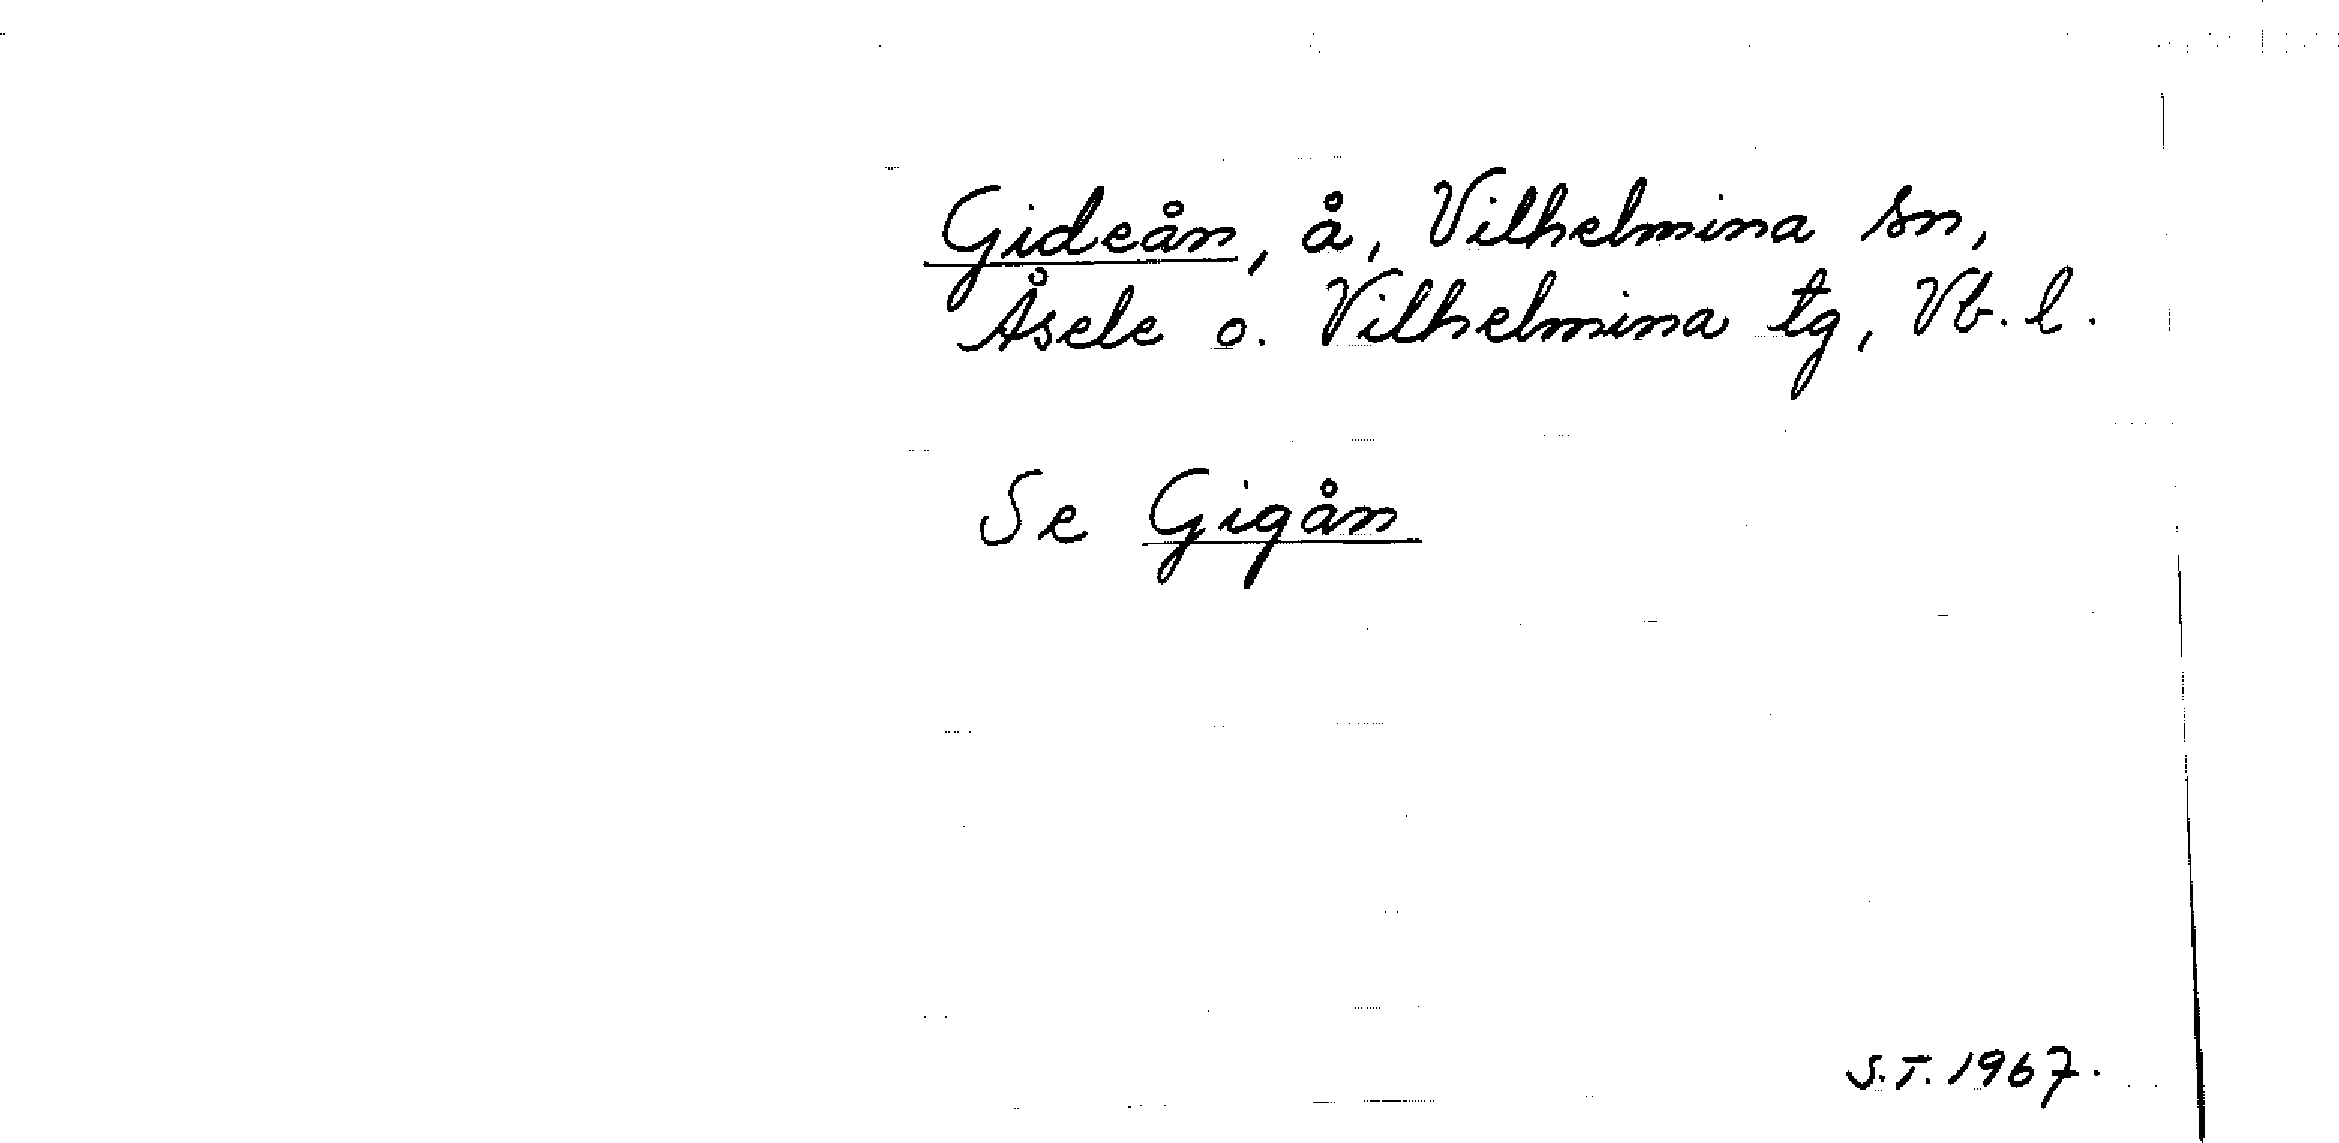 Gideån, å, Vilhelmina sn,
Åsele o. Vilhelmina tg, Vb. l.
Se Gigån
S.T. 1967.